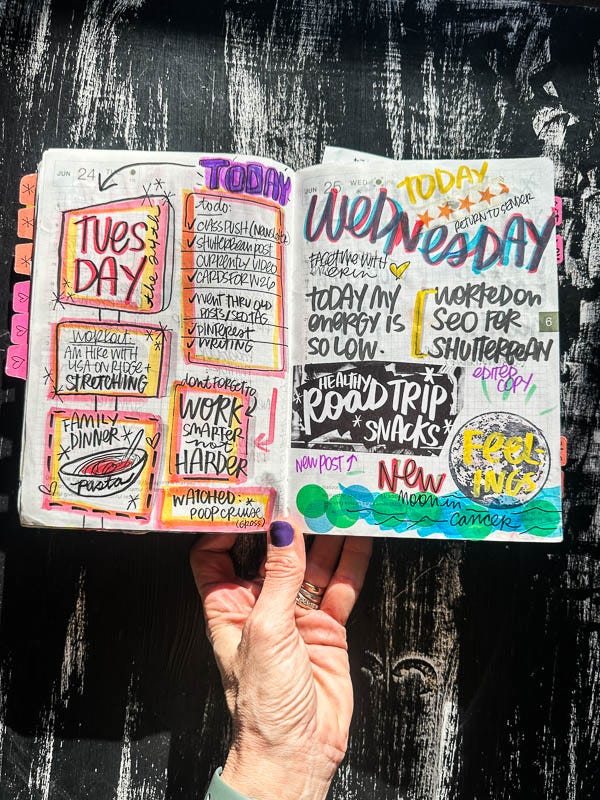 JUN 24
TODAY
TUES
DAY
the 24th
todo:
CLASS PUSH (Newsletter)
SHUTTERBEAN POST
CURRENTLY VIDEO
CARDS FOR W26
WENT THRU OLD
POSTS/SEO TAG
PINTEREST
WRITING
WORKOUT:
AM HIKE WITH
LISA ON RIDGE +
STRETCHING
don't forget to
WORK
SMARTER
not
HARDER
FAMILY
DINNER
pasta
WATCHED:
POOP CRUISE
(GROSS)
JUN 25 WED
TODAY
RETURN TO SENDER
WEDNESDAY
FACETIME WITH
erin
TODAY MY
ENERGY IS
SO LOW.
WORKED ON
SEO FOR
SHUTTERBEAN
6
EDITED
COPY
HEALTHY
ROAD TRIP
SNACKS
NEW POST ↑
FEEL-
INGS
NEW
MOON in
CANCER